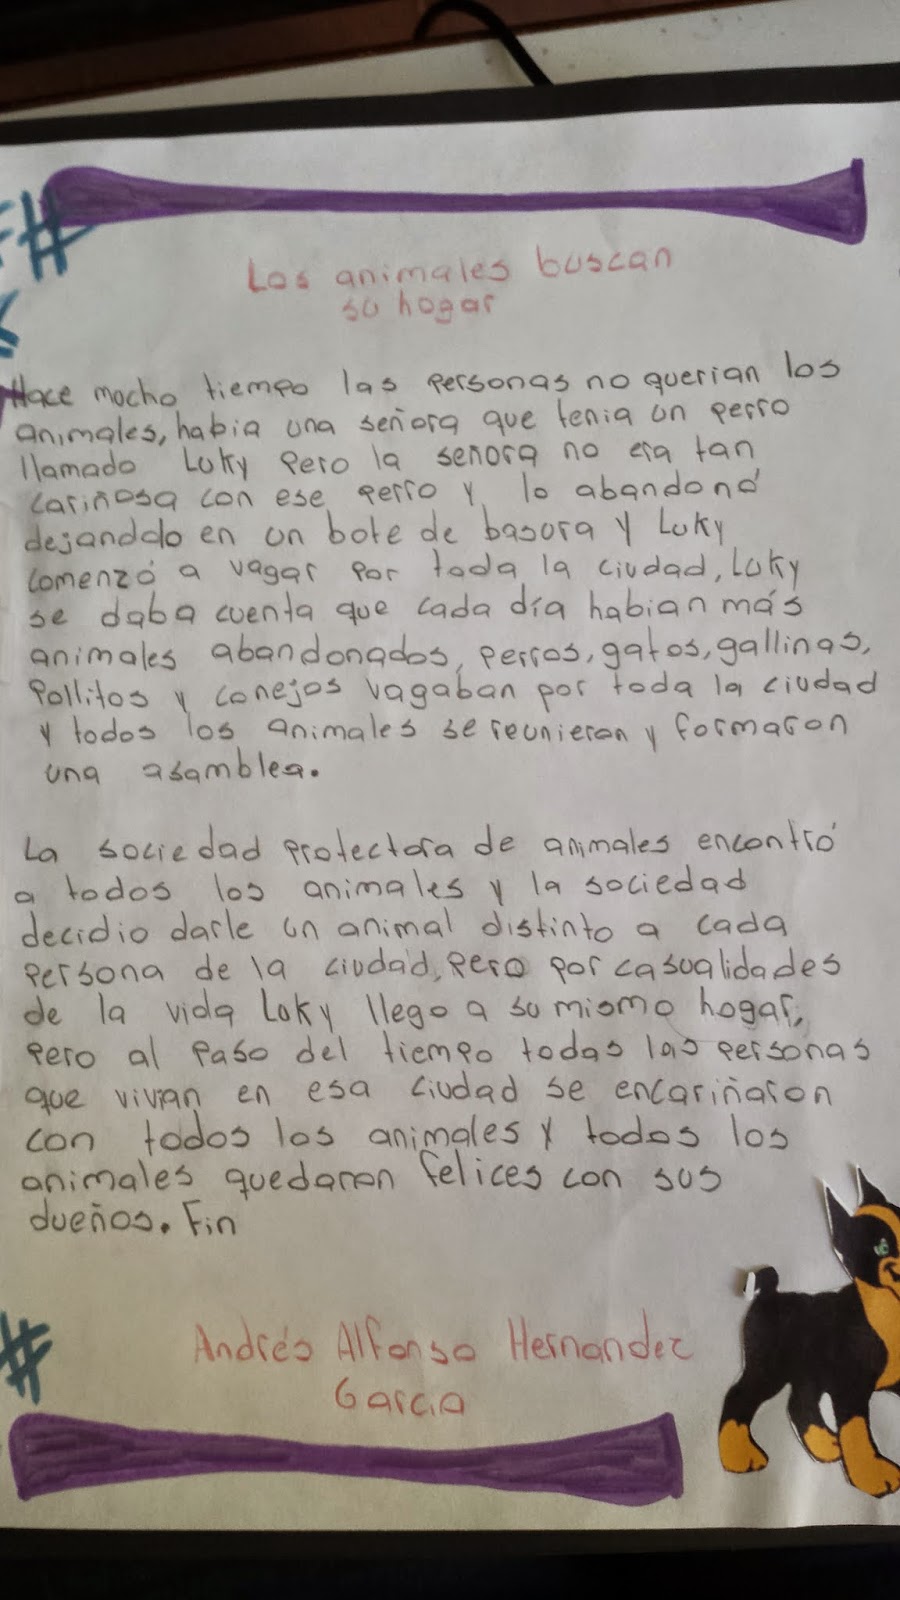 Los animales buscan
su hogar
Hace mucho tiempo las personas no querian los
animales, habia una señora que tenia un perro
llamado Luky pero la señora no era tan
cariñosa con ese perro y lo abandonó
dejandolo en un bote de basura y Luky
comenzó a vagar por toda la ciudad, Luky
se daba cuenta que cada día habian más
animales abandonados, perros, gatos, gallinas,
pollitos y conejos vagaban por toda la ciudad
y todos los animales se reunieron y formaron
una asamblea.
La sociedad protectora de animales encontró
a todos los animales y la sociedad
decidio darle un animal distinto a cada
persona de la ciudad, pero por casualidades
de la vida Luky llego a su mismo hogar,
pero al paso del tiempo todas las personas
que vivian en esa ciudad se encariñaron
con todos los animales y todos los
animales quedaron felices con sus
dueños. Fin
Andrés Alfonso Hernandez
Garcia